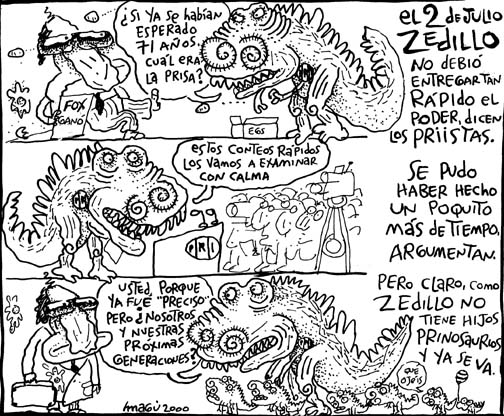 ¿SI YA SE HABÍAN
ESPERADO
71 AÑOS,
CUÁL ERA
LA PRISA?
FOX
GANÓ
EGS
EL 2 DE JULIO
ZEDILLO
NO DEBIÓ
ENTREGAR TAN
RÁPIDO EL
PODER, DICEN
LOS PRIISTAS.
ESTOS CONTEOS RÁPIDOS
LOS VAMOS A EXAMINAR
CON CALMA
PRI
SE PUDO
HABER HECHO
UN POQUITO
MÁS DE TIEMPO,
ARGUMENTAN.
USTED, PORQUE
YA FUE "PRECISO"
PERO ¿NOSOTROS
Y NUESTRAS
PRÓXIMAS
GENERACIONES?
PERO CLARO, COMO
ZEDILLO NO
TIENE HIJOS
PRINOSAURIOS
Y YA SE VA.
QUE
MAGÚ 2000